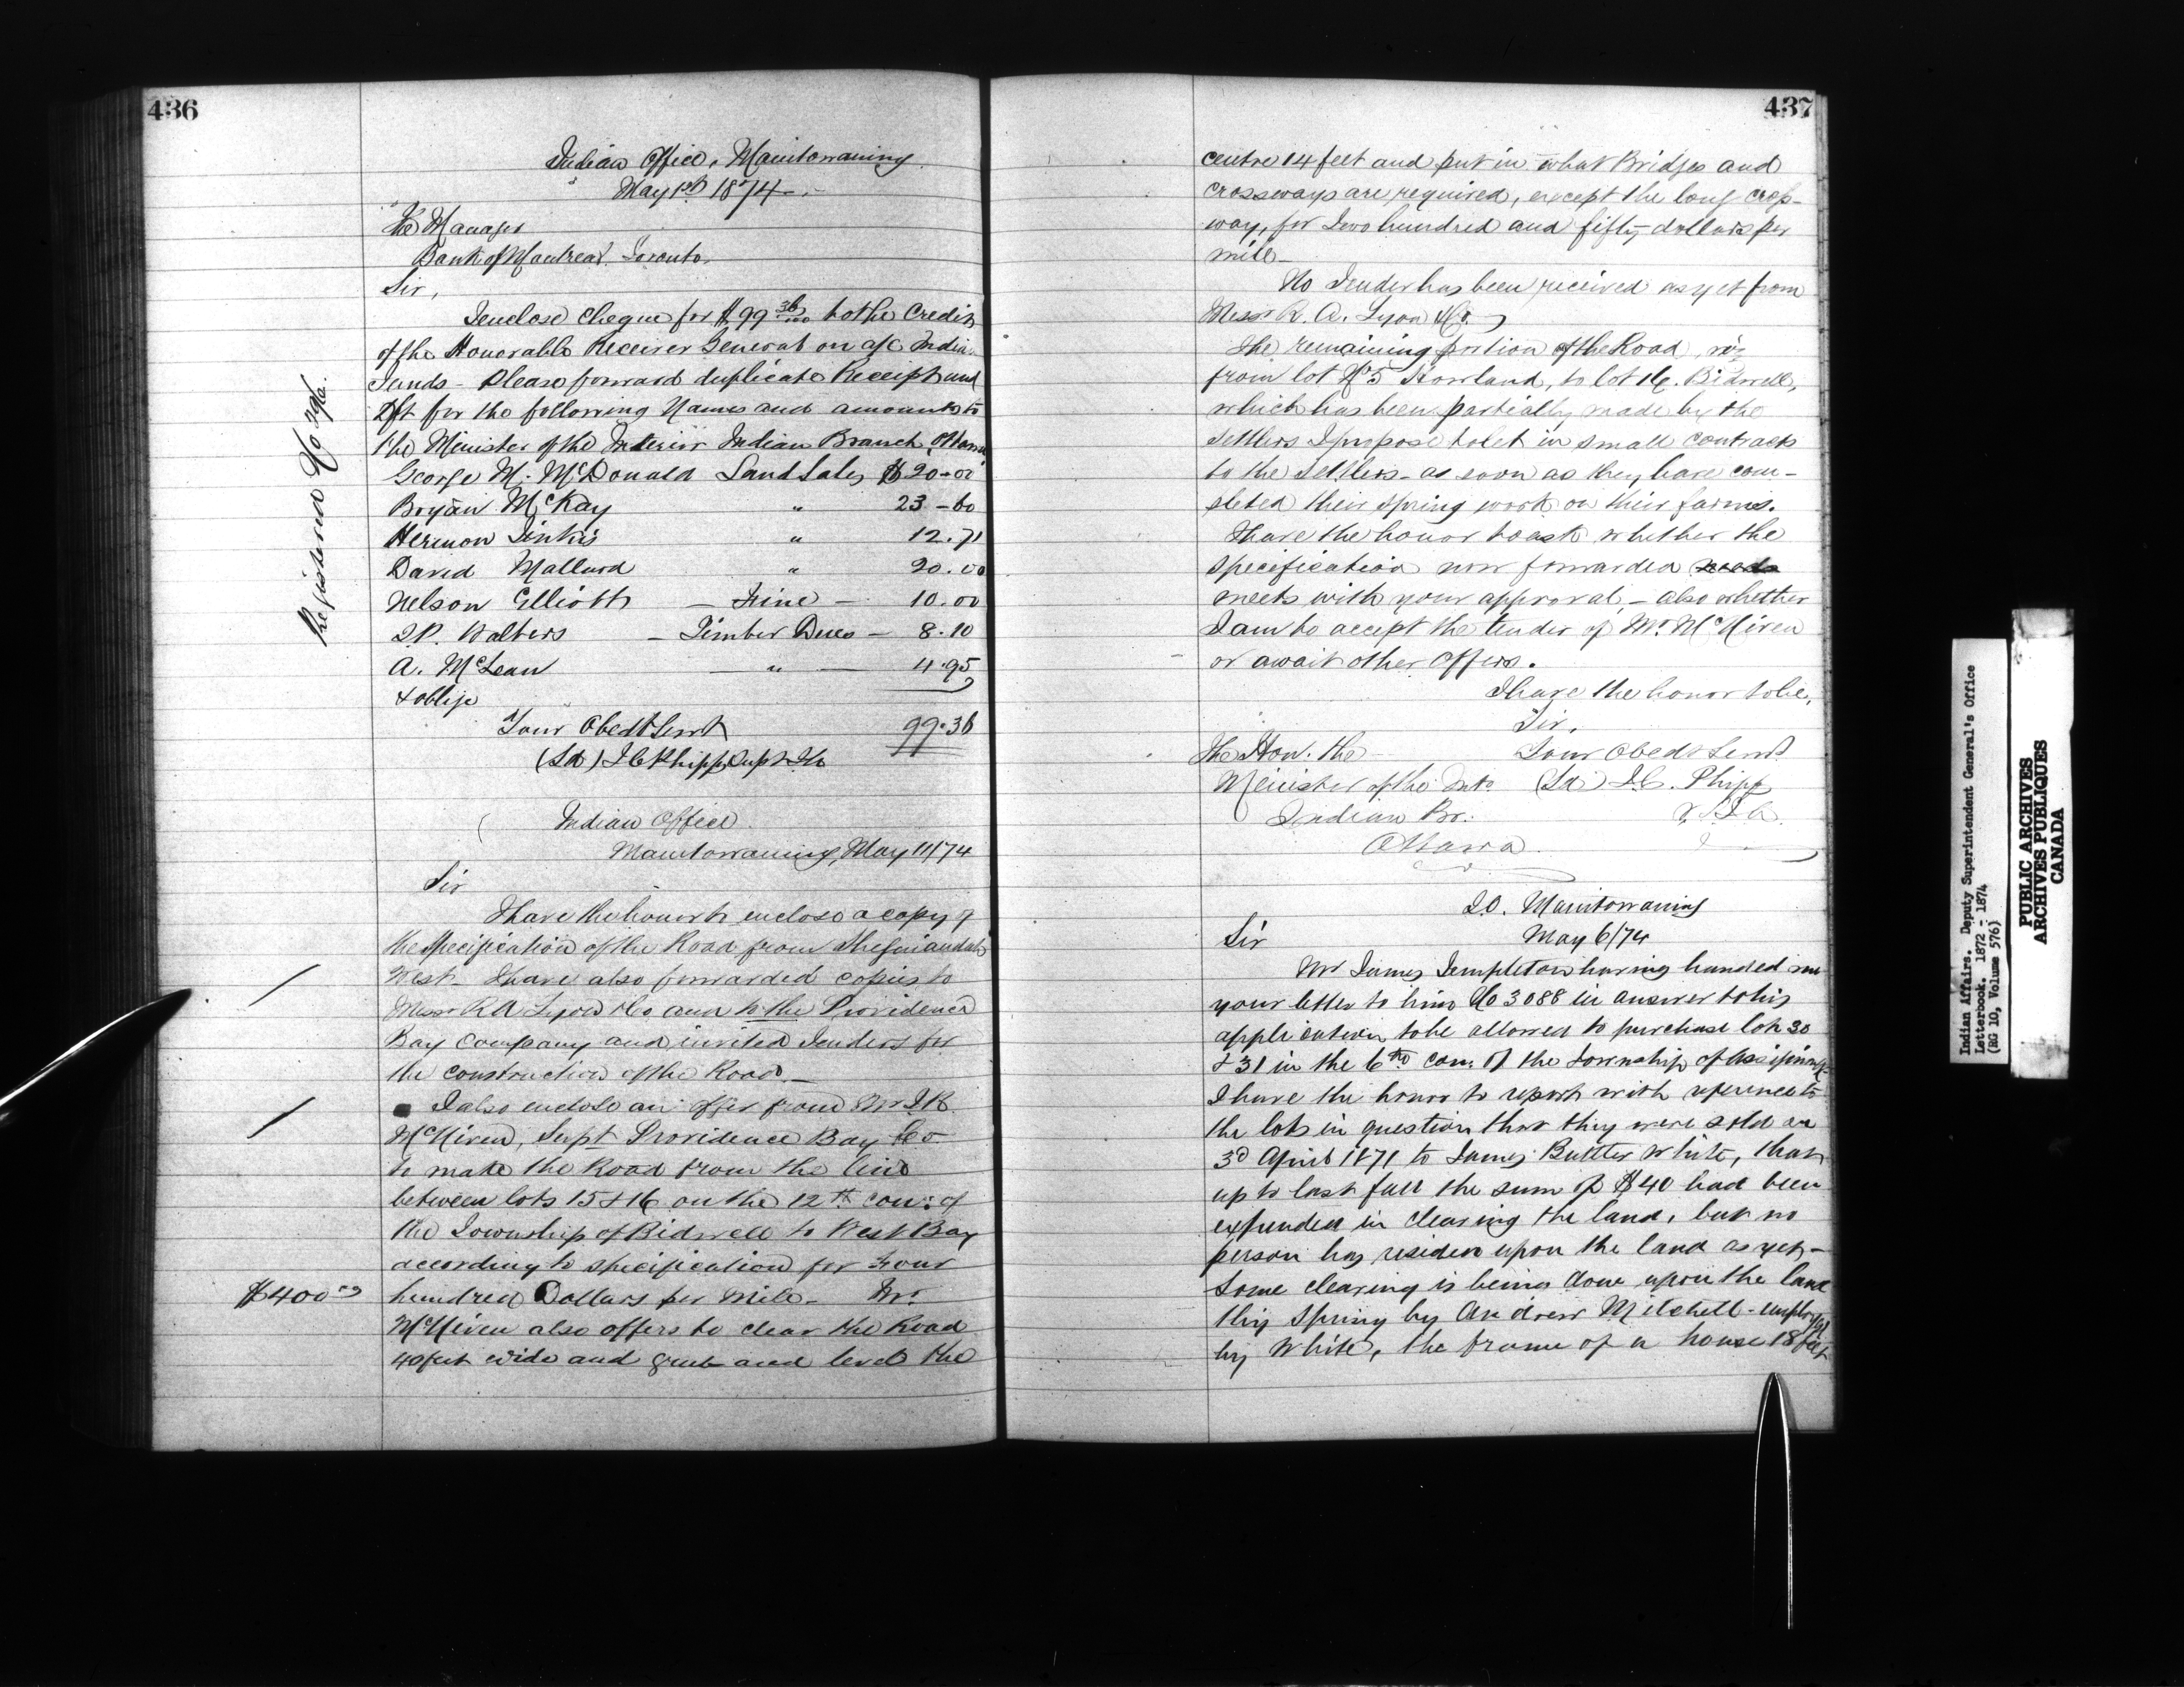 436
Indian Office, Manitowaning
May 1st 1874
The Manager
Bank of Montreal Toronto.
Sir,
I enclose Cheque for $99 36/100 to the Credit
of the Honorable Receiver General on a/c Indian
Funds - Please forward duplicate Receipt and
Dft for the following Names and amounts to
the Minister of the Interior Indian Branch, Ottawa
George M. McDonald Land Sales $20-00
Bryan McKay " 23-60
Hermon " 12.71
David Mallard " 20.00
Nelson Elliott - Fine - 10.00
Walters - Timber Dues - 8.10
A. McLean " 4.95
& oblige
Your Obedt Servt 99.36
(Sd) J C Phipps Supt
Registered No 396.
Indian Office
Manitowaning, May 11/74
Sir
I have the honor to enclose a copy of
the Specification of the Road from Sheguiandah
West - I have also forwarded copies to
Messrs R A Lyon & Co and to the Providence
Bay Company and invited Tenders for
the construction of the Road -
I also enclose an offer from Mr J R
McNiven, Supt Providence Bay Co
to make the Road from the line
between lots 15 & 16 on the 12th con: of
the Township of Bidwell to West Bay
according to specification for Four
$400.00
hundred Dollars per Mile - Mr
McNiven also offers to clear the Road
40 feet wide and grub and level the
437
centre 14 feet and put in what Bridges and
Crossways are required, except the long Cross-
way, for Two hundred and fifty dollars per
mile -
No Tender has been received as yet from
Messrs R. A. Lyon & Co.
The remaining portion of the Road, viz
from lot No 5 Howland, to lot 16. Bidwell,
which has been partially made by the
settlers I propose to let in small contracts
to the settlers - as soon as they have com-
pleted their spring work on their farms.
I have the honor to ask whether the
specification now forwarded
meets with your approval, - also whether
I am to accept the tender of Mr McNiven
or await other Offers.
I have the honor to be,
Sir,
The Hon. the Your Obedt Servt
Minister of the Intr (Sd) J.C. Phipps
Indian Br: V.S.I.A.
Ottawa.
I.O. Manitowaning
Sir May 6/74
Mr James Templeton having handed me
your letter to him No 3088 in answer to his
application to be allowed to purchase lots 30
& 31 in the 6th con: of the Township of Assiginack
I have the honor to report with reference to
the lots in question that they were sold on
3d April 1871 to James Buttter White, that
up to last fall the sum of $40 had been
expended in clearing the land, but no
person has resided upon the land as yet -
Some clearing is being done upon the land
this Spring by Andrew Mitchell - employed
by White, the frame of a house 18 feet
Indian Affairs. Deputy Superintendent General's Office
Letterbook. 1872 - 1874
(RG 10, Volume 576)
PUBLIC ARCHIVES
ARCHIVES PUBLIQUES
CANADA